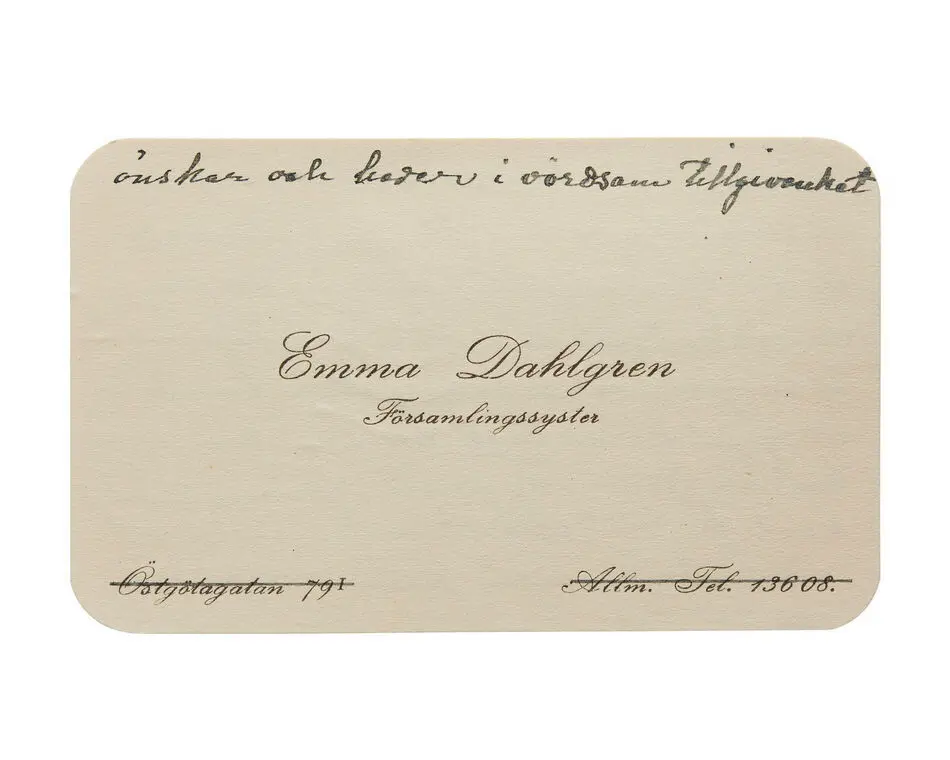 önskar och beder i vördsam tillgivenhet
Emma Dahlgren
Församlingssyster
Östgötagatan 79¹ Allm. Tel. 136 08.